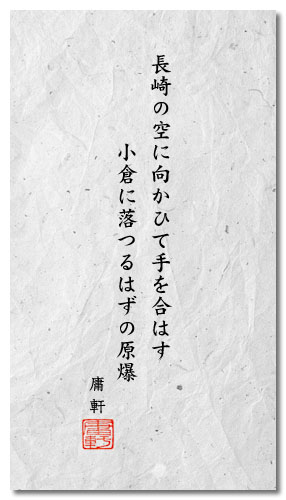 長崎の空に向かひて手を合はす
小倉に落つるはずの原爆
庸軒
庸軒